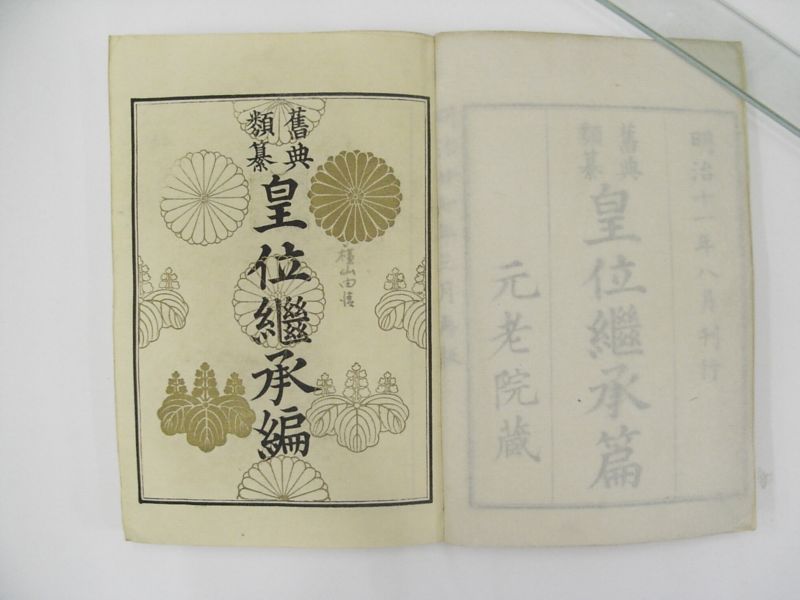 明治十一年八月刊行
舊典
類纂
皇位繼承篇
元老院蔵
舊典
類纂
皇位繼承編
横山由清